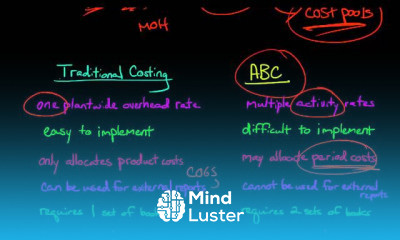 cost pools
MOH
Traditional Costing
ABC
one plantwide overhead rate
multiple activity rates
easy to implement
difficult to implement
only allocates product costs
may allocate period costs
COGS
can be used for external reports
cannot be used for external
reports
requires 1 set of books
requires 2 sets of books
Mind
Luster